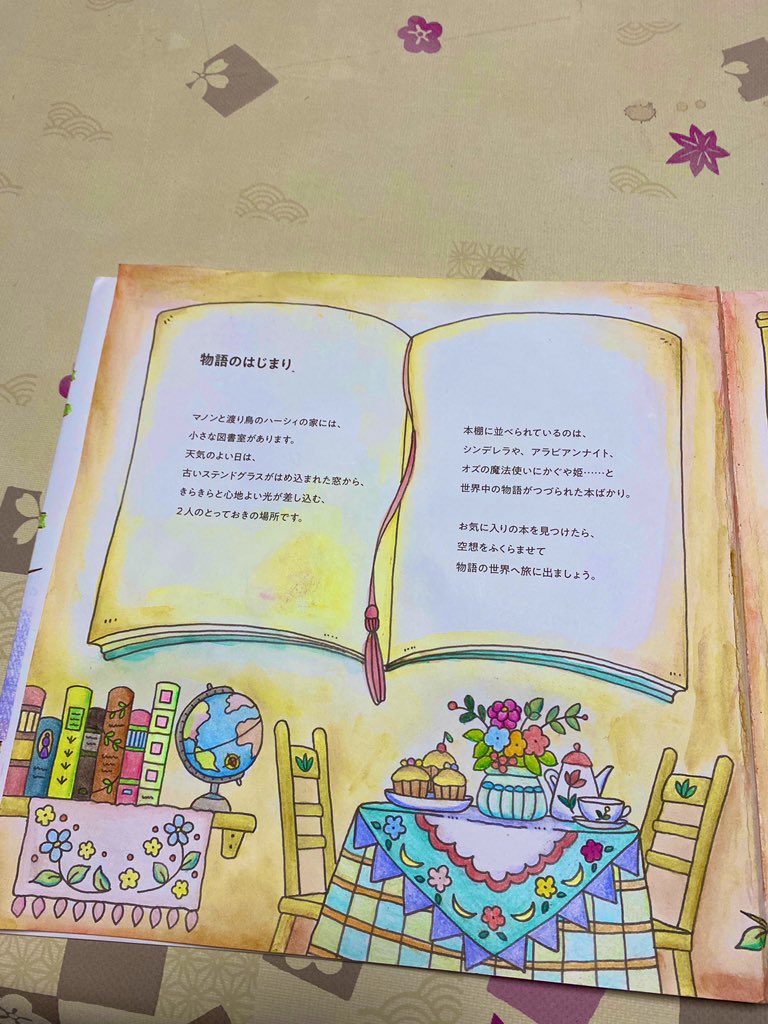 物語のはじまり
マノンと渡り鳥のハーシィの家には、
小さな図書室があります。
天気のよい日は、
古いステンドグラスがはめ込まれた窓から、
きらきらと心地よい光が差し込む、
2人のとっておきの場所です。
本棚に並べられているのは、
シンデレラや、アラビアンナイト、
オズの魔法使いにかぐや姫……と
世界中の物語がつづられた本ばかり。
お気に入りの本を見つけたら、
空想をふくらませて
物語の世界へ旅に出ましょう。